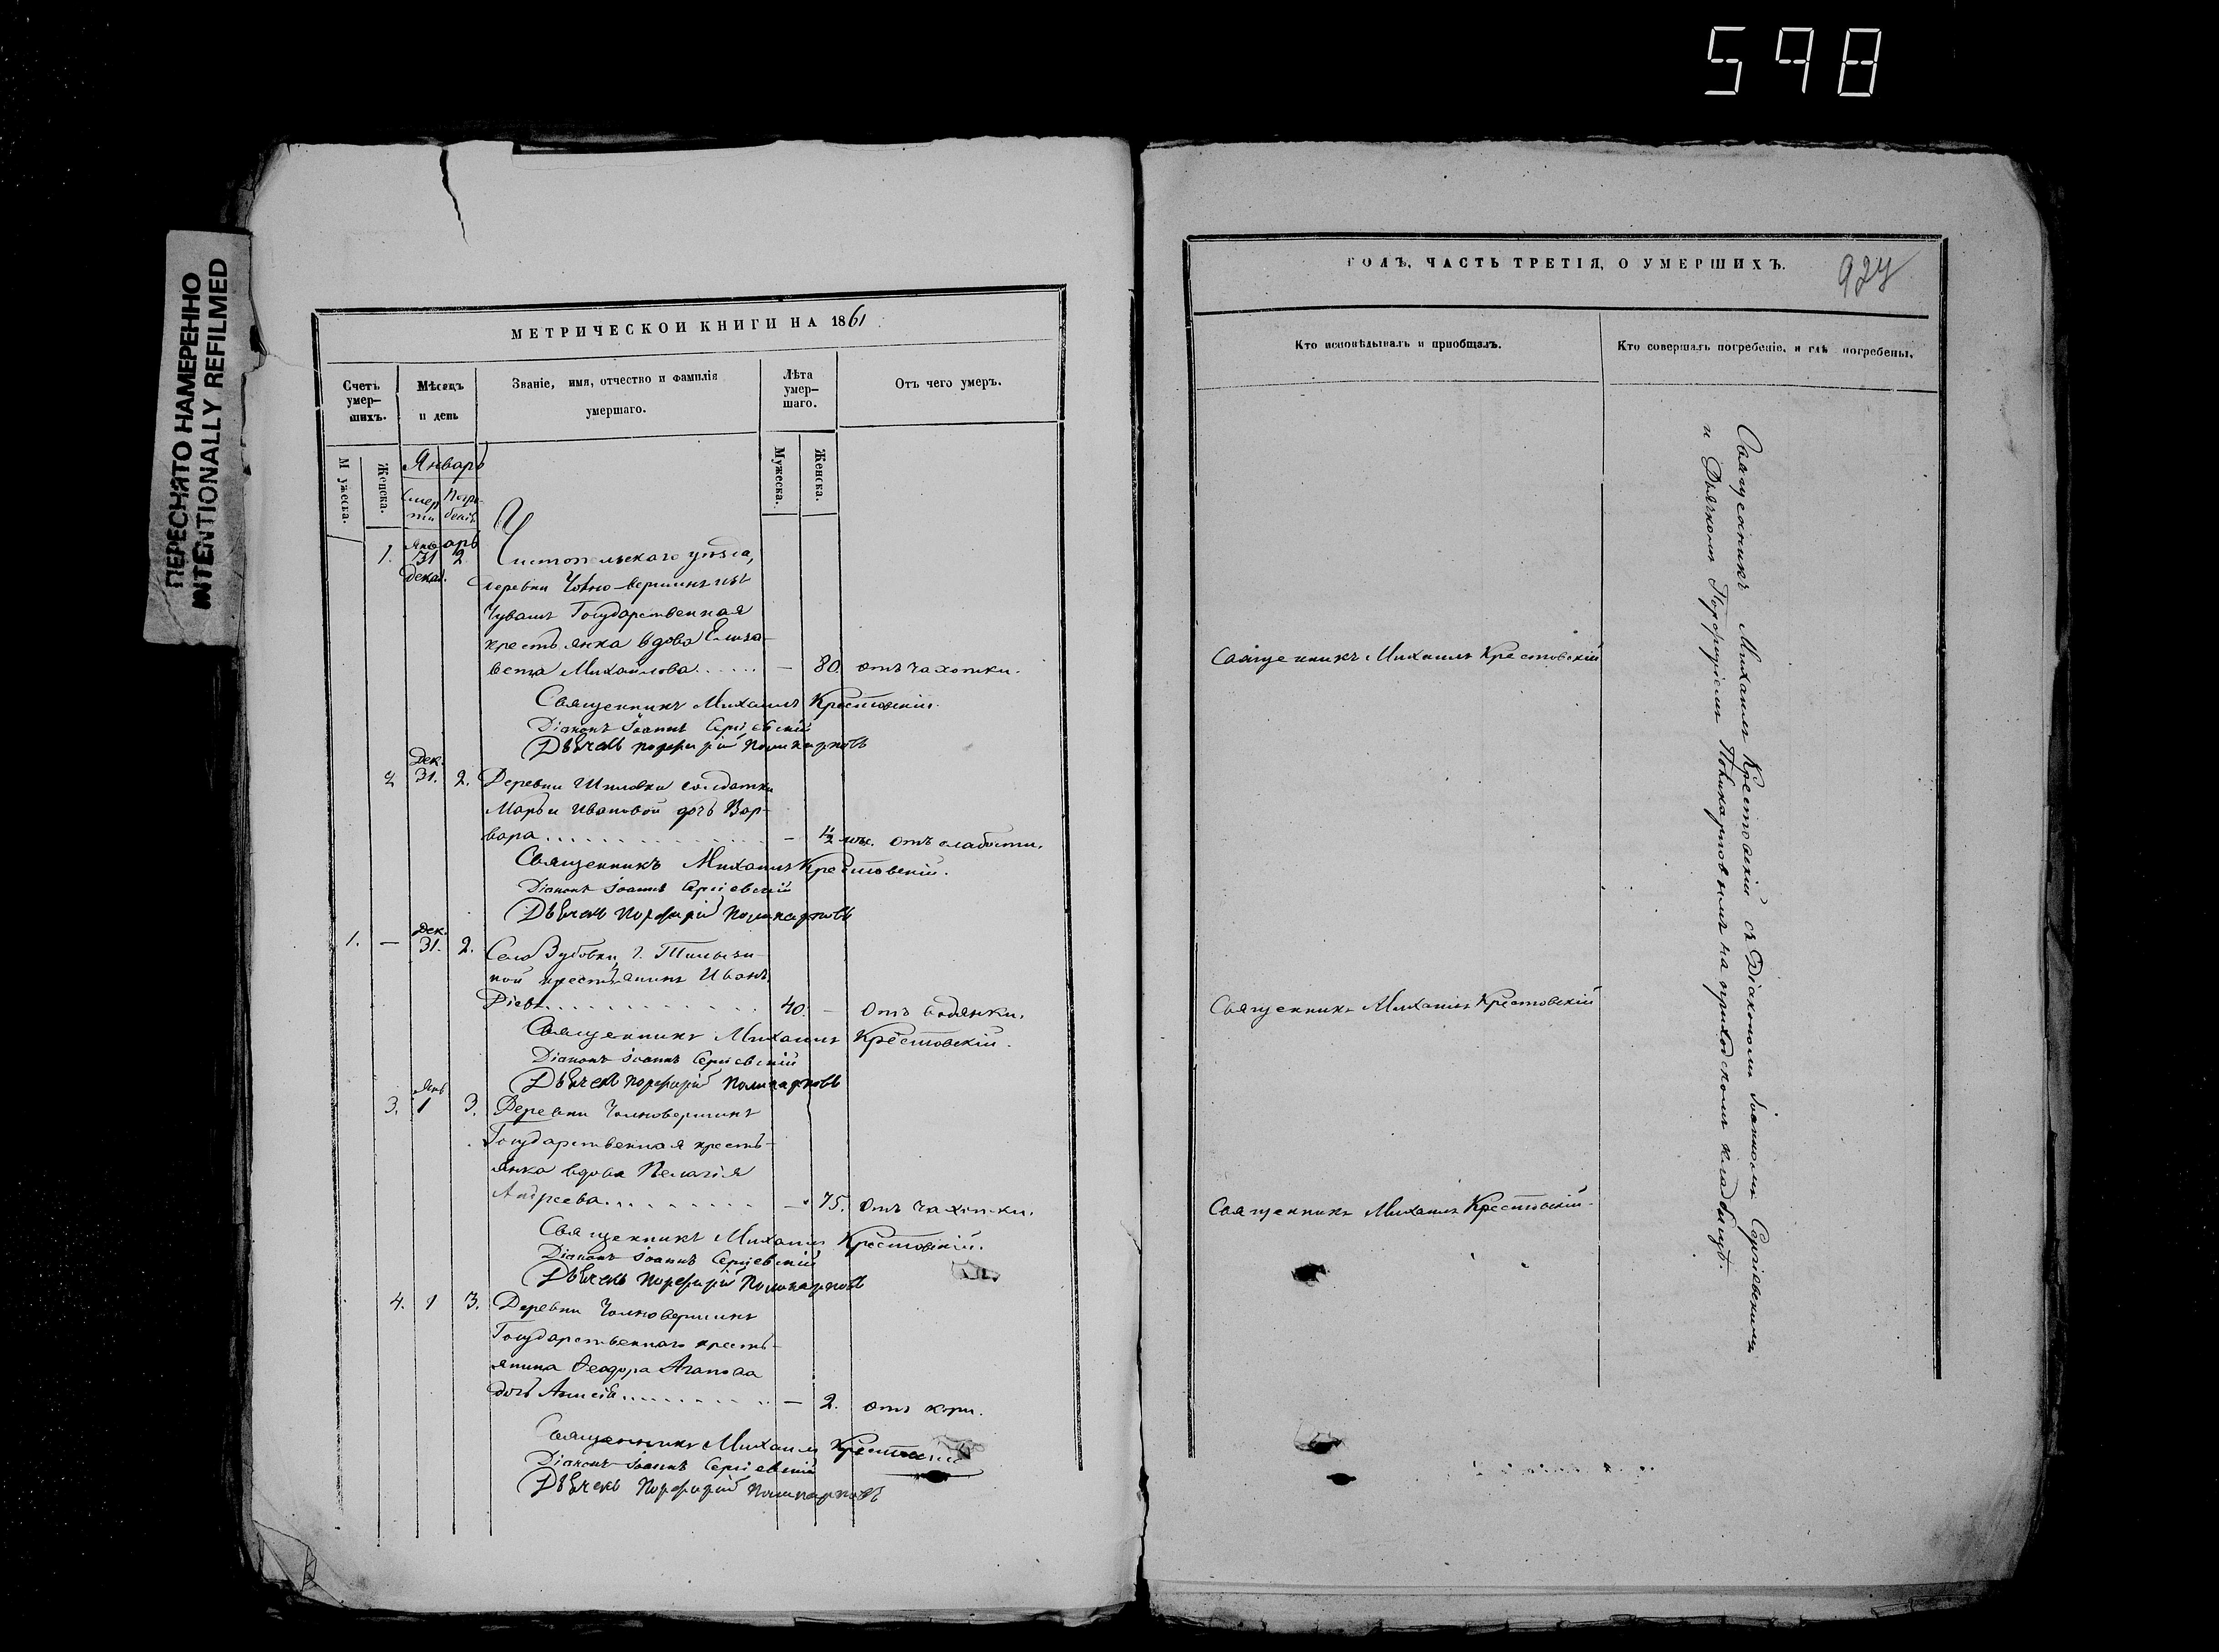 598
ПЕРЕСНЯТО НАМЕРЕННО
INTENTIONALLY REFILMED
МЕТРИЧЕСКОЙ КНИГИ НА 1861
Счетъ умер-шихъ.
Мѣсяцъ и день
Званіе, имя, отчество и фамилія умершаго.
Лѣта умер-шаго.
Отъ чего умеръ.
Мужеска.
Женска.
Январь
Смерти
Погребенія
Мужеска.
Женска.
Январь
1. 31 2. Чистопольскаго уѣзда,
Декаб. деревни Чолно-Вершинъ изъ
Чувашъ Государственная
крестьянка вдова Елиза-
вета Михайлова...... — 80. отъ чахотки.
Священникъ Михаилъ Крестовскій.
Діаконъ Іоаннъ Сергіевскій
Дьячекъ Порфирій Поликарповъ
Дек.
2 31. 2. Деревни Шиловки солдатки
Марьи Ивановой дочь Вар-
вара.............. — ½ мѣс. отъ слабости.
Священникъ Михаилъ Крестовскій.
Діаконъ Іоаннъ Сергіевскій
Дьячекъ Порфирій Поликарповъ
Дек.
1. — 31. 2. Села Зубовки г.
крестьянинъ Иванъ
40. — Отъ водянки.
Священникъ Михаилъ Крестовскій.
Діаконъ Іоаннъ Сергіевскій
Дьячекъ Порфирій Поликарповъ
Янв
3. 1 3. Деревни Чолновершинъ
Государственная кресть-
янка вдова Пелагія
Андреева......... — 75. Отъ чахотки.
Священникъ Михаилъ Крестовскій.
Діаконъ Іоаннъ Сергіевскій
Дьячекъ Порфирій Поликарповъ
4. 1 3. Деревни Чолновершинъ
Государственнаго кресть-
янина Ѳеодора Агапова
дочь Анисія......... — 2. Отъ кори.
Священникъ Михаилъ Крестовскій
Діаконъ Іоаннъ Сергіевскій
Дьячекъ Порфирій Поликарповъ
ГОДЪ, ЧАСТЬ ТРЕТІЯ, О УМЕРШИХЪ.
927
Кто исповѣдывалъ и пріобщалъ.
Кто совершалъ погребеніе, и гдѣ погребены.
Священникъ Михаилъ Крестовскій
Священникъ Михаилъ Крестовскій
Священникъ Михаилъ Крестовскій.
Священникъ Михаилъ Крестовскій съ Діакономъ Іоанномъ Сергіевскимъ
и Дьячкомъ Порфиріемъ Поликарповымъ на приходскомъ кладбищѣ.